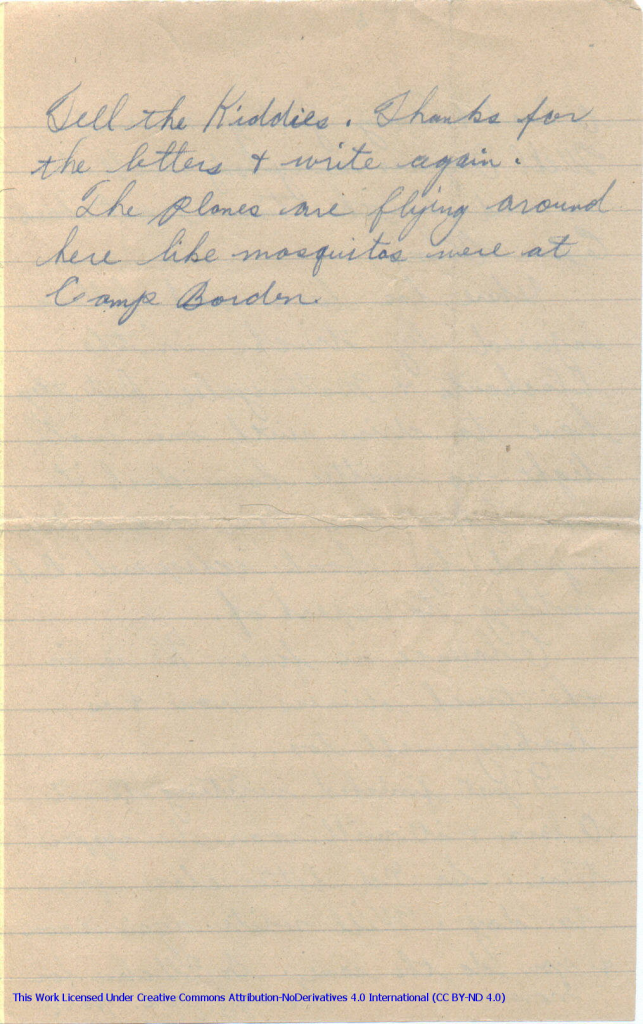 Tell the Kiddies. Thanks for
the letters + write again.
The planes are flying around
here like mosquitos were at
Camp Borden.
This Work Licensed Under Creative Commons Attribution-NoDerivatives 4.0 International (CC BY-ND 4.0)